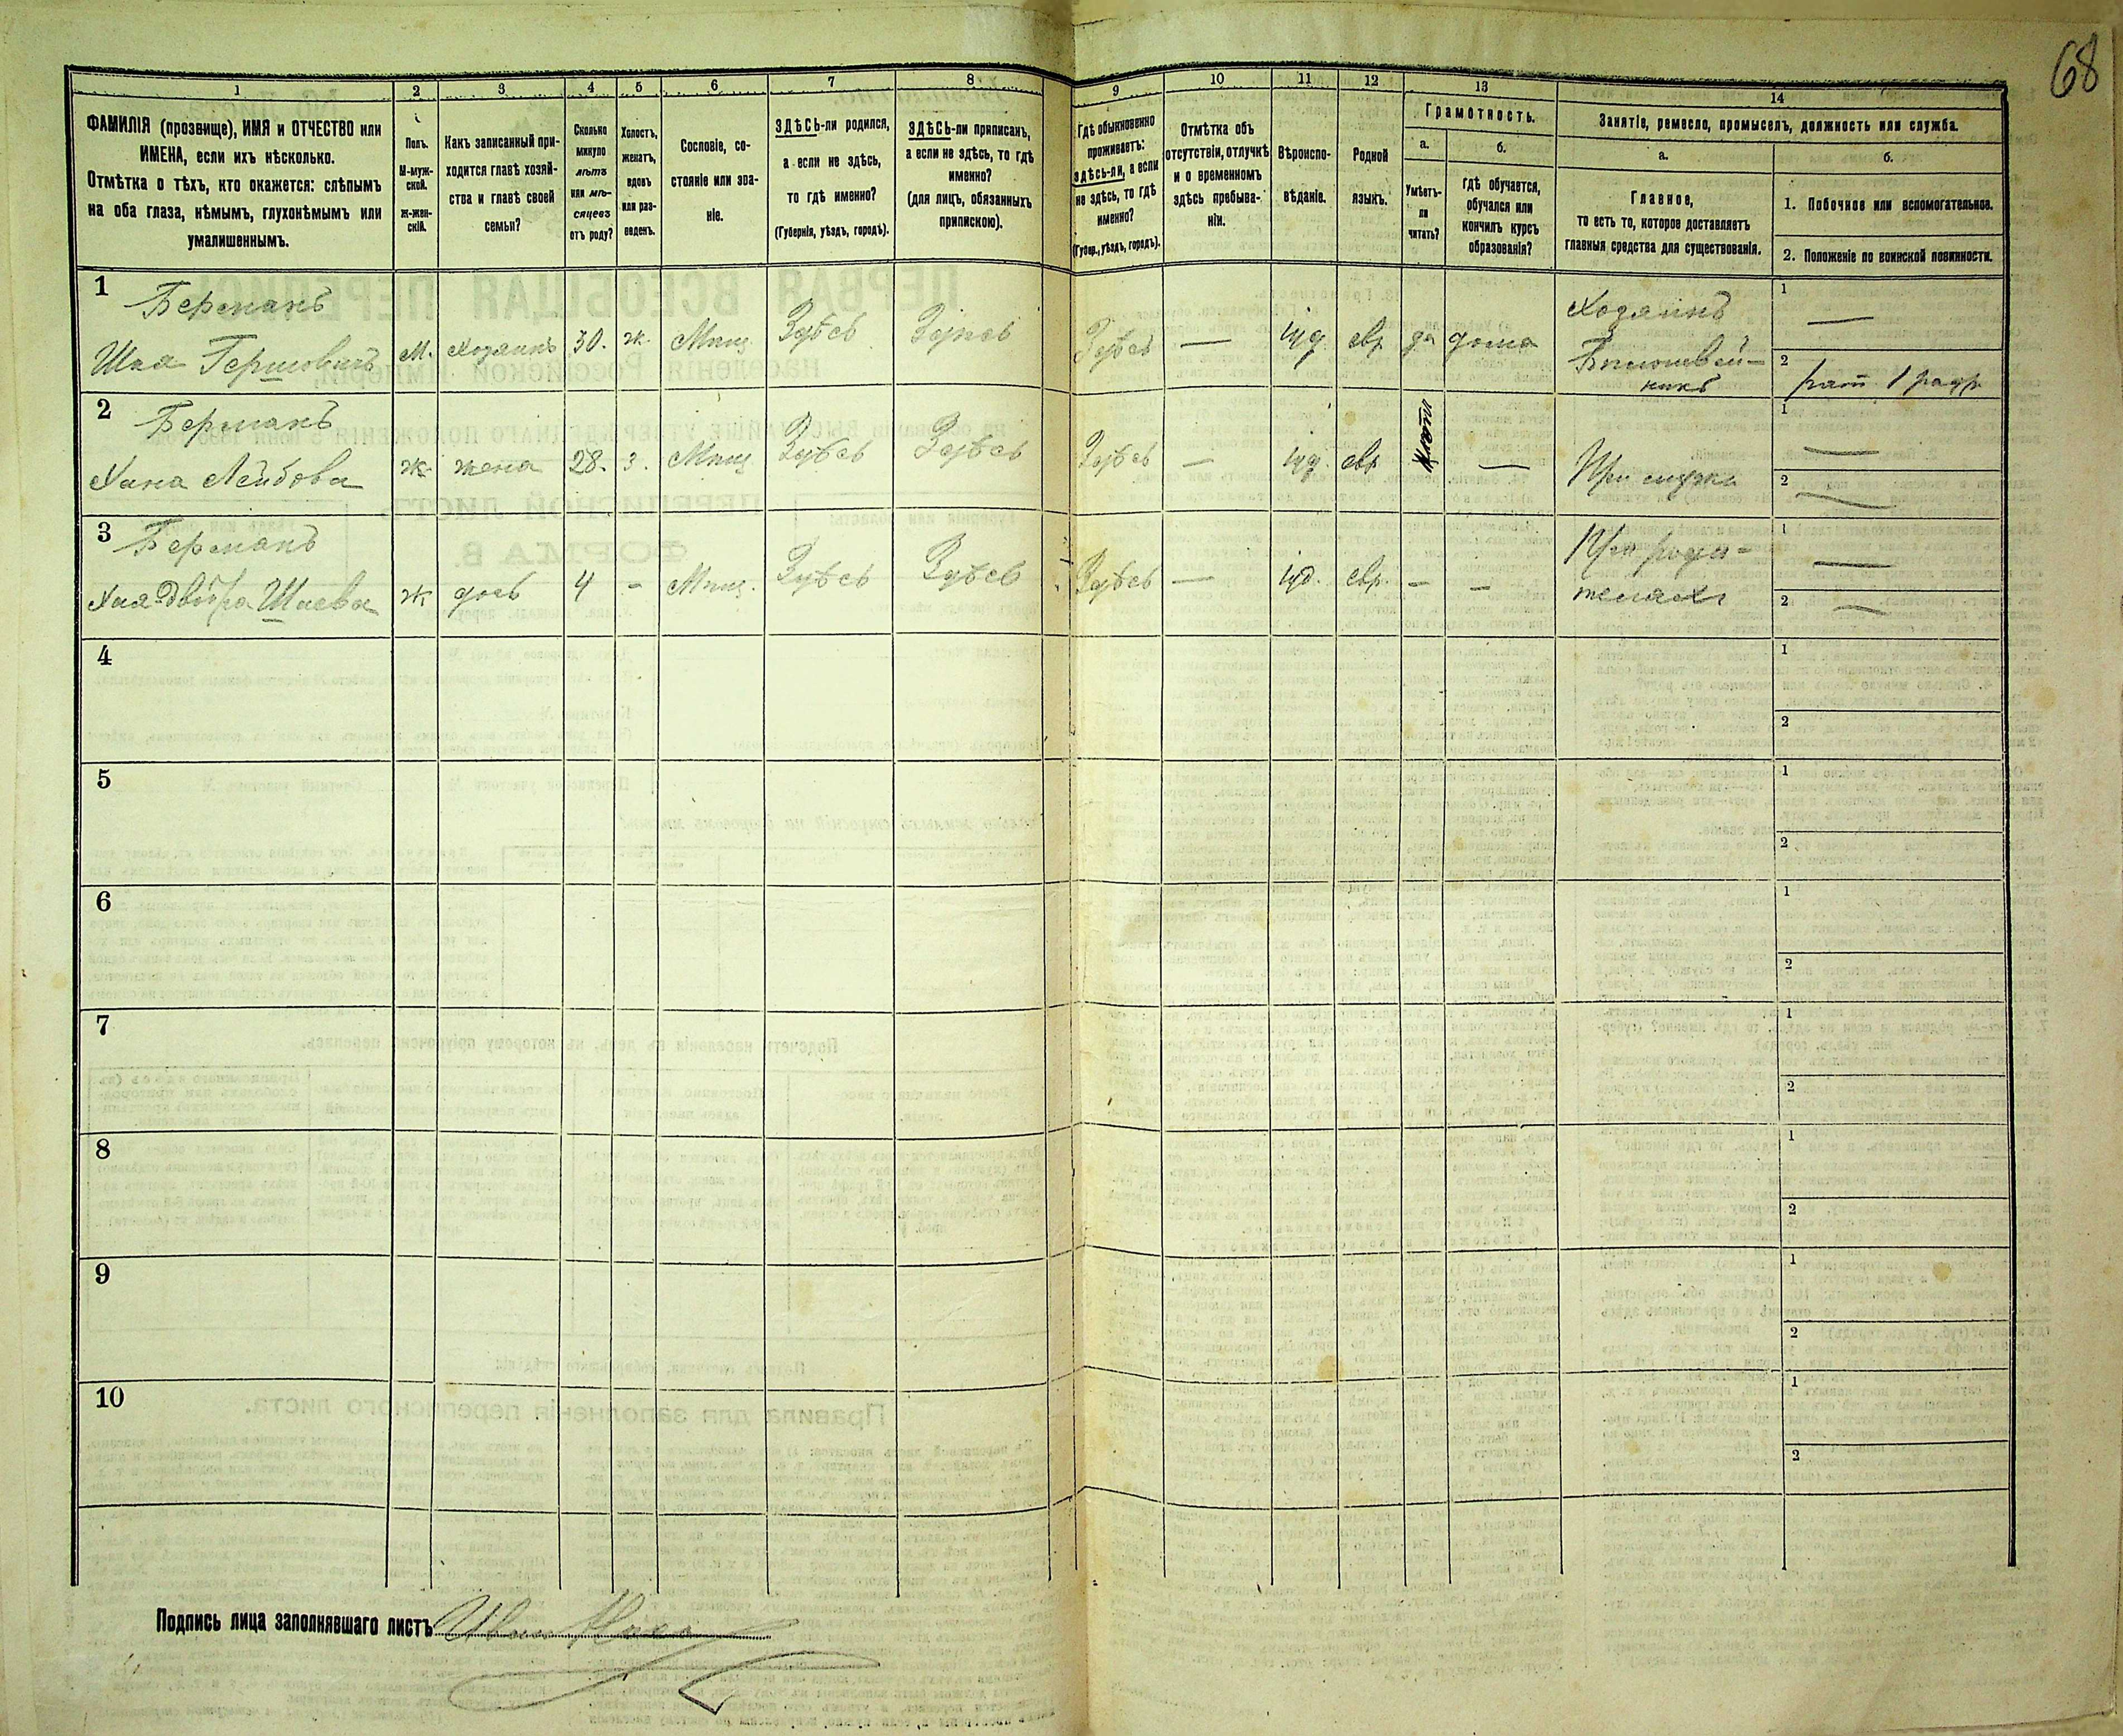 68
1
2
3
4
5
6
7
8
9
10
11
12
13
14
ФАМИЛІЯ (прозвище), ИМЯ и ОТЧЕСТВО или
ИМЕНА, если ихъ нѣсколько.
Отмѣтка о тѣхъ, кто окажется: слѣпымъ
на оба глаза, нѣмымъ, глухонѣмымъ или
умалишеннымъ.
Полъ.
М-муж-
ской.
Ж-жен-
скій.
Какъ записанный при-
ходится главѣ хозяй-
ства и главѣ своей
семьи?
Сколько
минуло
лѣтъ
или мѣ-
сяцевъ
отъ роду?
Холостъ,
женатъ,
вдовъ
или раз-
веденъ.
Сословіе, со-
стояніе или зва-
ніе.
ЗДѢСЬ-ли родился,
а если не здѣсь,
то гдѣ именно?
(Губернія, уѣздъ, городъ).
ЗДѢСЬ-ли приписанъ,
а если не здѣсь, то гдѣ
именно?
(для лицъ, обязанныхъ
припискою).
Гдѣ обыкновенно
проживаетъ:
здѣсь-ли, а если
не здѣсь, то гдѣ
именно?
(Губер., уѣздъ, городъ).
Отмѣтка объ
отсутствіи, отлучкѣ
и о временномъ
здѣсь пребыва-
ніи.
Вѣроиспо-
вѣданіе.
Родной
языкъ.
Грамотность.
а.
Умѣетъ-
ли
читать?
б.
Гдѣ обучается,
обучался или
кончилъ курсъ
образованія?
Занятіе, ремесло, промыселъ, должность или служба.
а.
Главное,
то есть то, которое доставляетъ
главныя средства для существованія.
б.
1. Побочное или вспомогательное.
2. Положеніе по воинской повинности.
1
Берманъ
Шая Гершовичъ
М. Хозяинъ 30. ж. Мѣщ. Здѣсь Здѣсь Здѣсь — іуд. евр. да дома
Хозяинъ
1 —
2 рат. 1 разр.
2
Берманъ
Хана Лейбова
ж. жена 28. з. Мѣщ. Здѣсь Здѣсь Здѣсь — іуд. евр. —
При мужѣ
1 —
2 —
3
Берманъ
Хая Двойра Шаева
ж дочь 4 - Мѣщ. Здѣсь Здѣсь Здѣсь — іуд. евр. - -
При роди-
теляхъ
1 —
2 —
4
1
2
5
1
2
6
1
2
7
1
2
8
1
2
9
1
2
10
1
2
Подпись лица заполнявшаго листъ